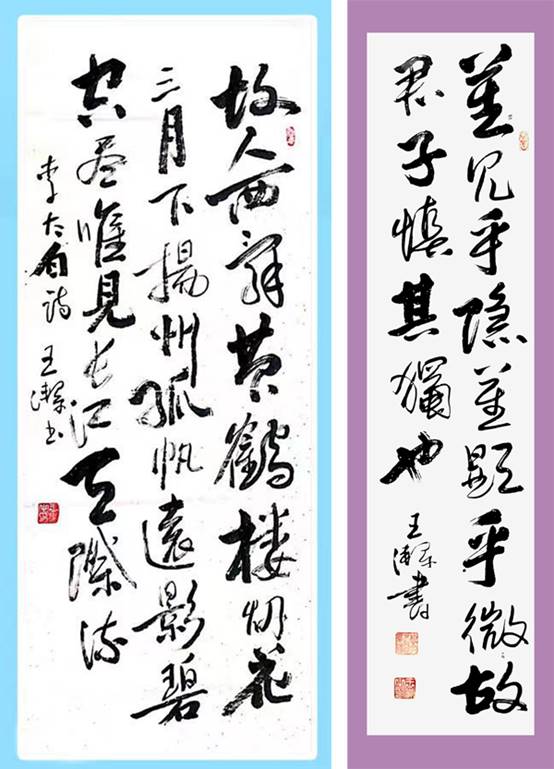 故人西辞黄鶴楼烟花
三月下揚州孤帆遠影碧
空尽唯見长江天際流
李太白诗 王书
莫见乎隐莫顕乎微故
君子慎其獨也
王書